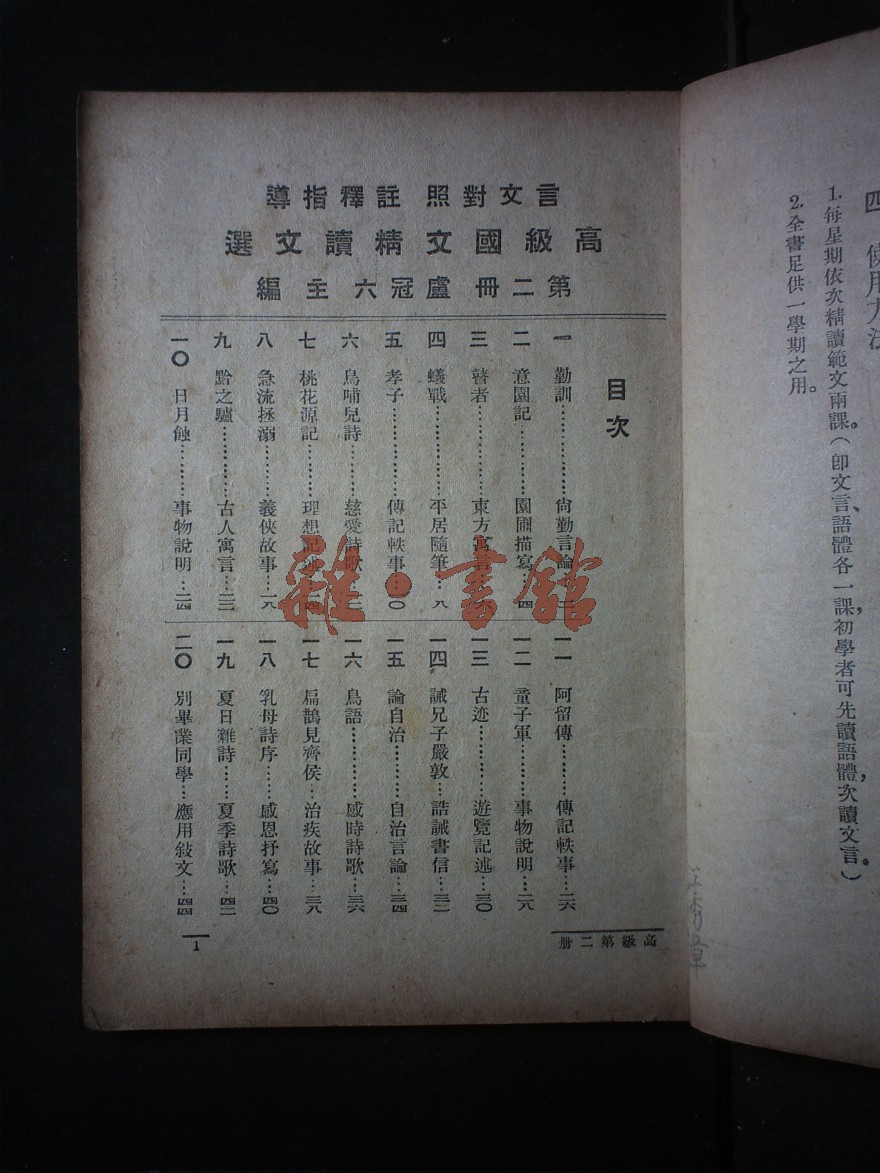 四 使用方法
1. 每星期依次精讀範文兩課。（卽文言、語體各一課，初學者可先讀語體，次讀文言。）
2. 全書足供一學期之用。
言文對照 註釋指導
高級國文精讀文選
第二冊 盧冠六主編
目次
一 勤訓………………尙勤言論…二
二 意園記……………園圃描寫…四
三 瞽者………………東方寓言…六
四 蟻戰………………平居隨筆…八
五 孝子………………傳記軼事…一〇
六 烏哺兒詩…………慈愛詩歌…一二
七 桃花源記…………理想記述…一四
八 急流拯溺…………義俠故事…一九
九 黔之驢……………古人寓言…二二
一〇 日月蝕…………事物說明…二四
一一 阿留傳…………傳記軼事…二六
一二 童子軍…………事物說明…二八
一三 古迹……………遊覽記述…三〇
一四 誡兄子嚴敦……誥誡書信…三二
一五 論自治…………自治言論…三四
一六 鳥語……………感時詩歌…三六
一七 扁鵲見齊侯……治疾故事…三八
一八 乳母詩序………感恩抒寫…四〇
一九 夏日雜詩………夏季詩歌…四二
二〇 別畢業同學……應用敍文…四四
高級第二册
1
雜·書館